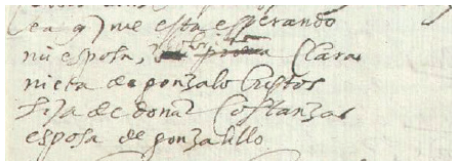 (en q) me esta esperando
mi esposa, Clara
nieta de gonzalo bustos
hija de donã Costanza
esposa de gonzalillo